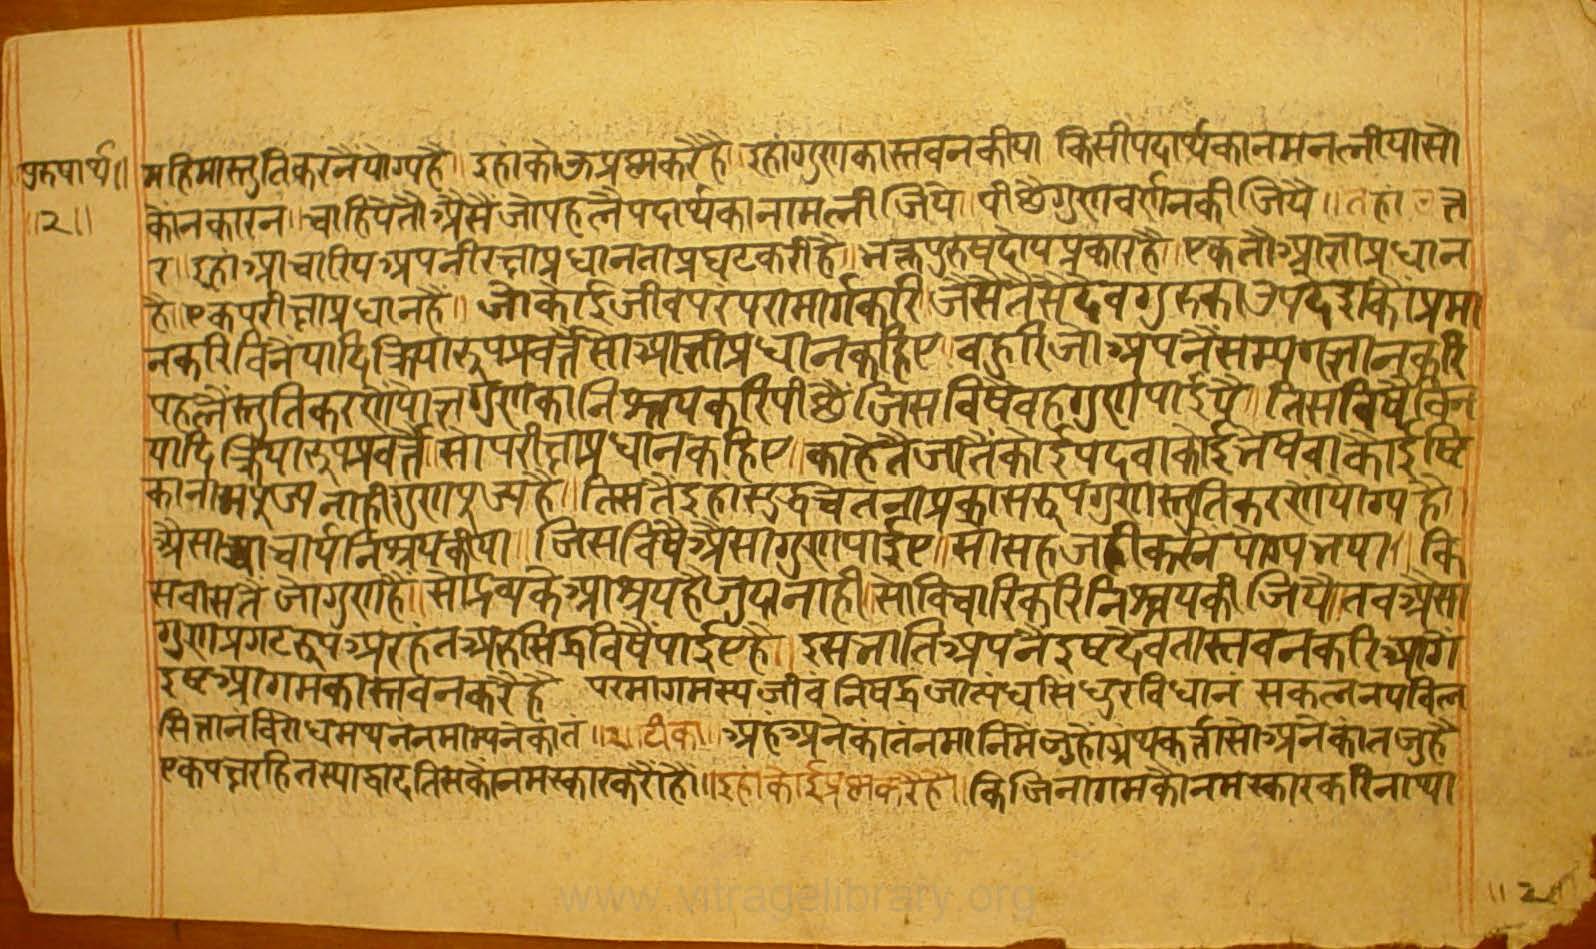 पुरुषार्थ॥
॥२॥
महिमास्तुतिकरनैंयोग्यहै॥ इहांकोऊप्रश्नकरैहै॥ इहांगुणकास्तवनकीया किसीपदार्थकानामनलीयासो
कौंनकारन॥ चाहियेतौअैसैजोपहलैपदार्थकानामलीजियै॥ पीछैगुणवर्णनकीजियै॥ तहांउत्त
र॥ इहांआचारियअपनीपरीक्षाप्रधानताप्रघटकरीहै॥ भक्तपुरुषदोयप्रकारहै॥ एकतौआज्ञाप्रधान
है॥ एकपरीक्षाप्रधानहैं॥ जोकोईजीवपरंपरामार्गकरि जैसेतैसैदेवगुरुकाउपदेशकौंप्रमा
नकरिविनैंयादिक्रियारूपप्रवर्त्तैसोआज्ञाप्रधानकहिए॥ बहुरिजोअपनैंसम्यग्ज्ञानकरि
पहलैंस्तुतिकरणेंयोग्यगुणकानिश्चयकरिपीछैं जिसविषैवहगुणपाईयै॥ तिसविषैविन
यादिक्रियारूपप्रवर्त्तै॥ सोपरीक्षाप्रधानकहिए॥ काहेतैजातैंकोईपदवाकोईभेषवाकोईष्टि
कानांमपूज्यनाहीगुणपूज्यहै॥ तिसतैइहांसुद्धचेतनाप्रकासरूपगुणस्तुतिकरणेंयोग्यहै॥
अैसाआचार्यनिश्चयकीया॥ जिसविषैअैसागुणपाईए॥ सोसहजहीकरनयोग्यभया॥ कि
सवासतै जोगुणहै॥ सोद्रव्यकेआश्रयहैजुदानाही॥ सोविचारिकरिनिश्चयकीजियै॥ तवअैसा
गुणप्रगटरूपअरहंतअरुसिद्धविषैंपाईएहै॥ इसभांतिअपनैइष्टदेवतास्तवनकरिआगै
इष्टआगमकास्तवनकरैहै परमागमस्यजीवं निषद्धजात्यंधसिंधुरविधानं सकलनयविल
सितानंविरोधमथनंनमाम्यनेकांतं ॥२॥टीका॥ अहंअनेकांतंनमामिमैंजुहौंग्रंथकर्त्तासोअनेकांतजुहै
एकपक्षरहितस्याद्वादतिसकौंनमस्कारकरौंहौं॥॥इहांकोईप्रश्नकरैहै॥ किजिनागमकौंनमस्कारकरिनाथा
॥२॥
www.vitragelibrary.org